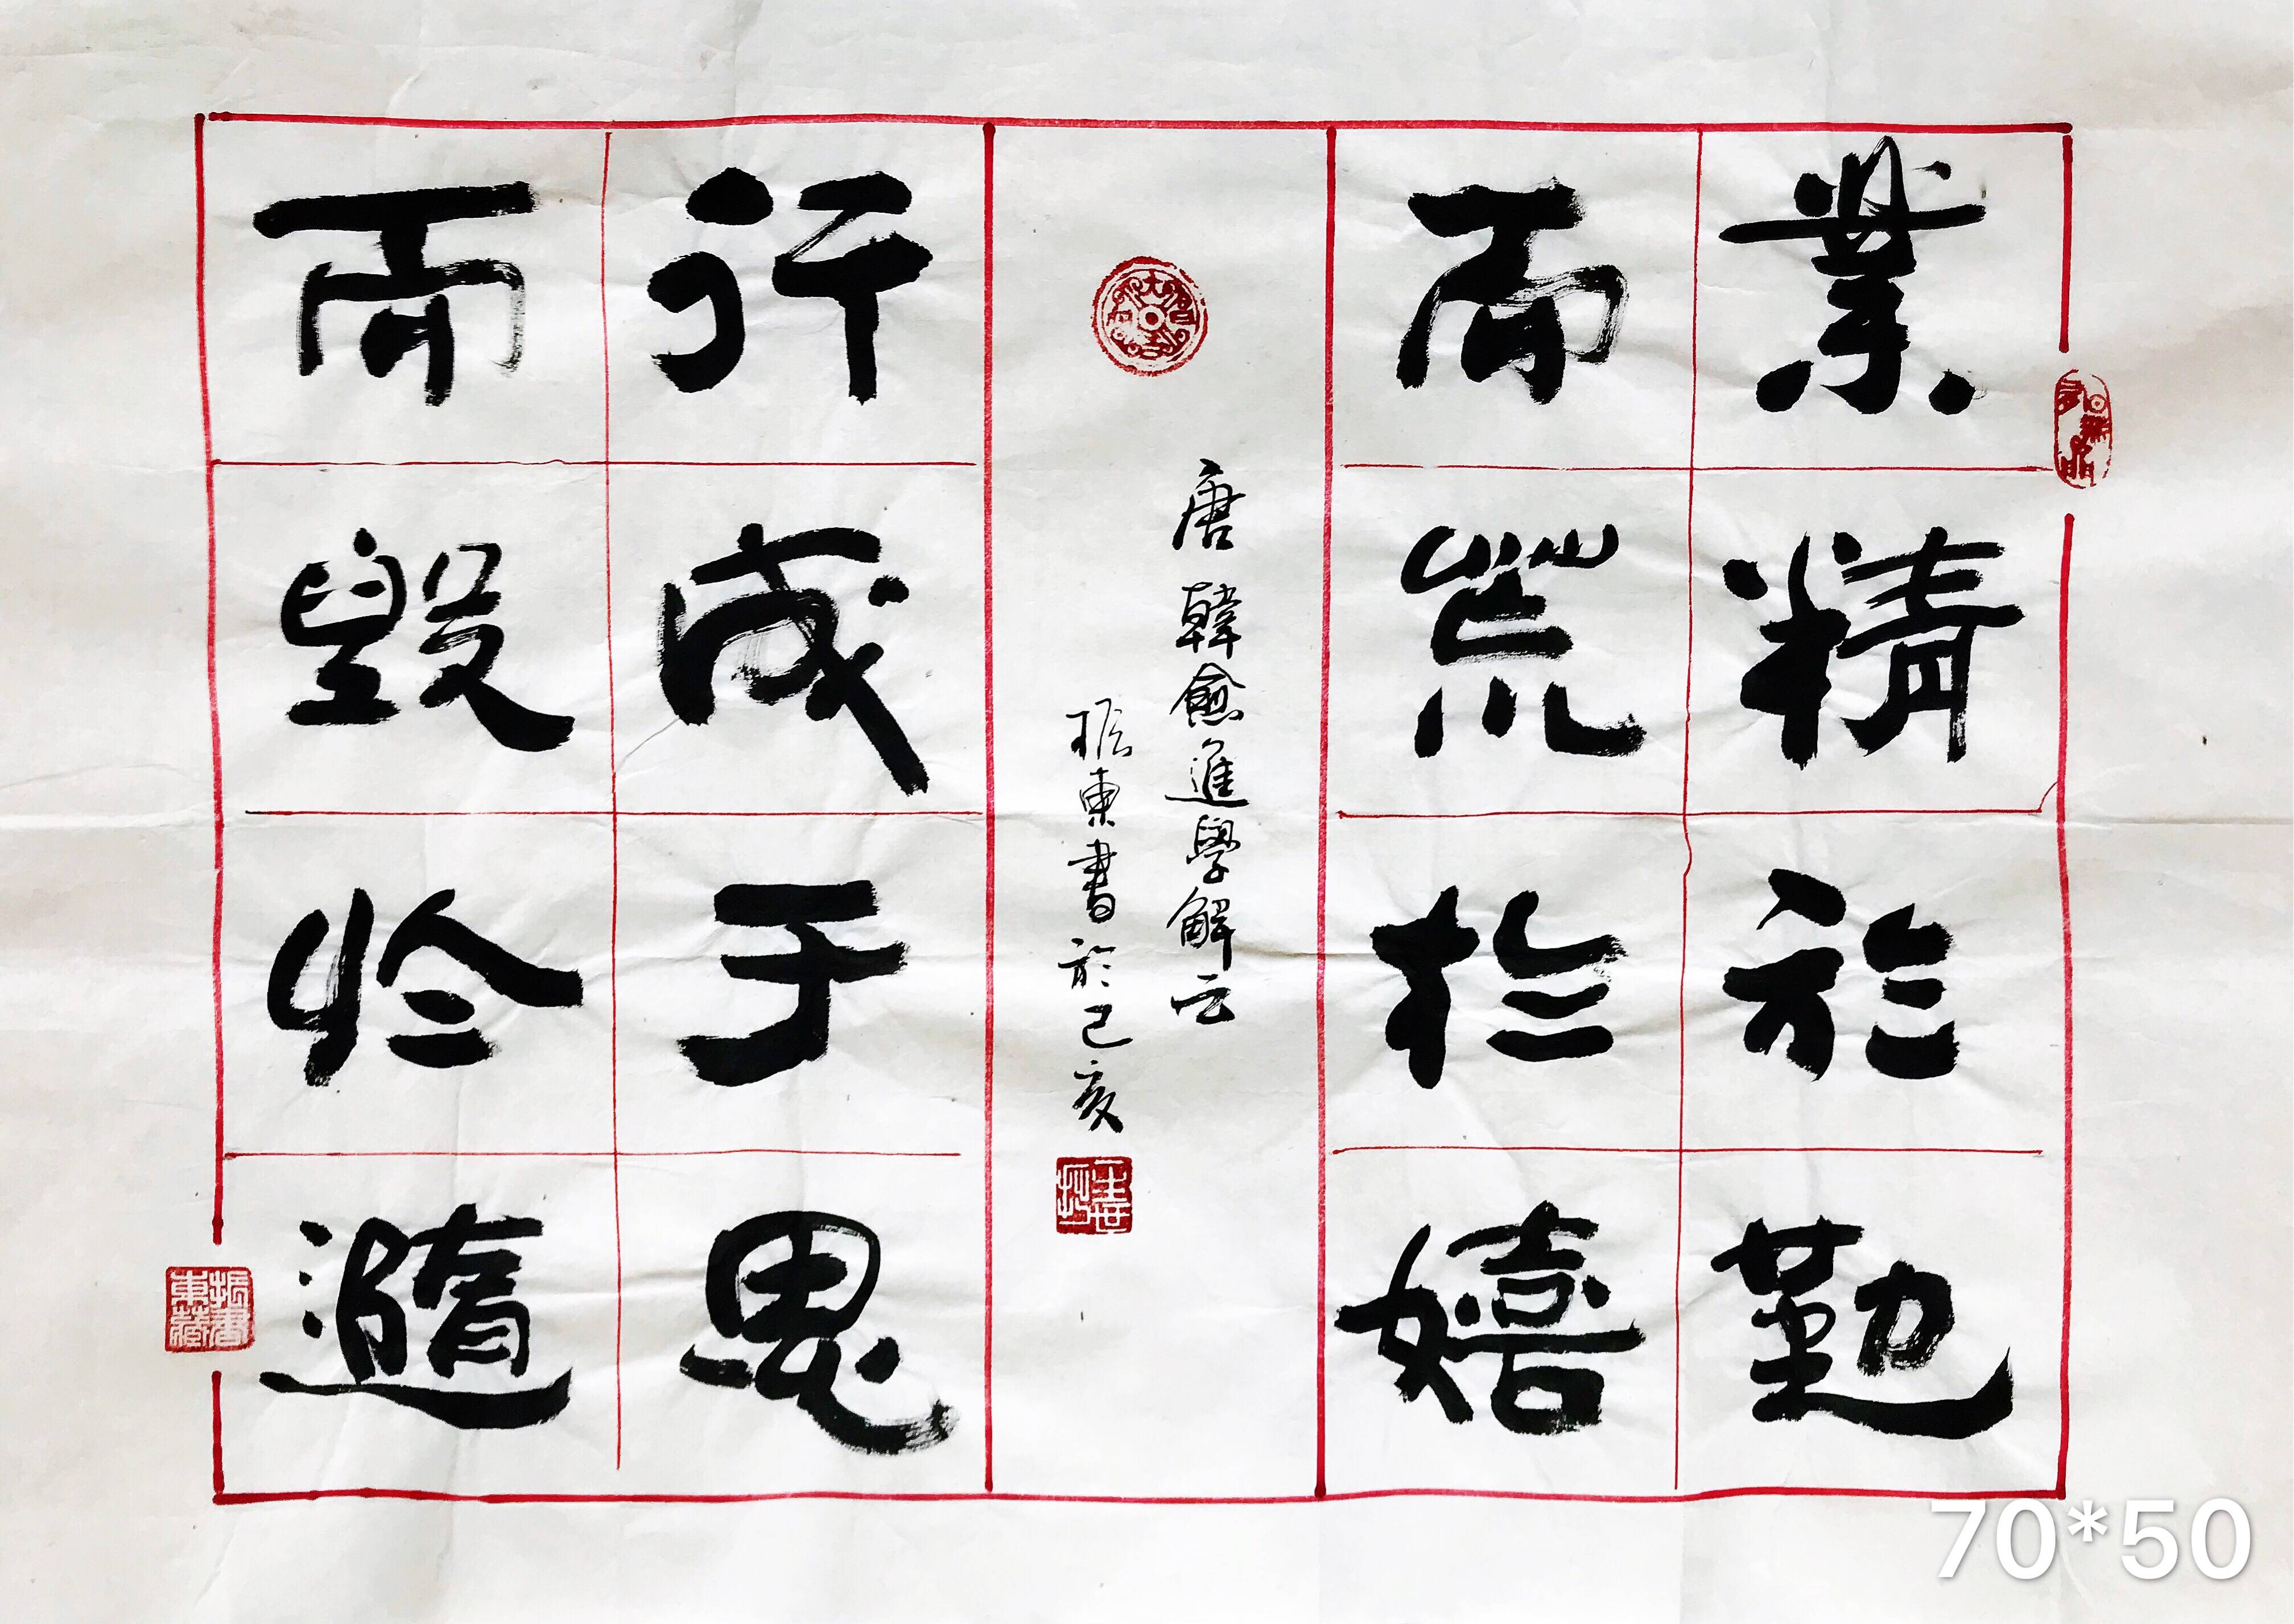 業精於勤
而荒於嬉
唐韓愈進學解云
振東書於己亥
行成于思
而毀於隨
70*50